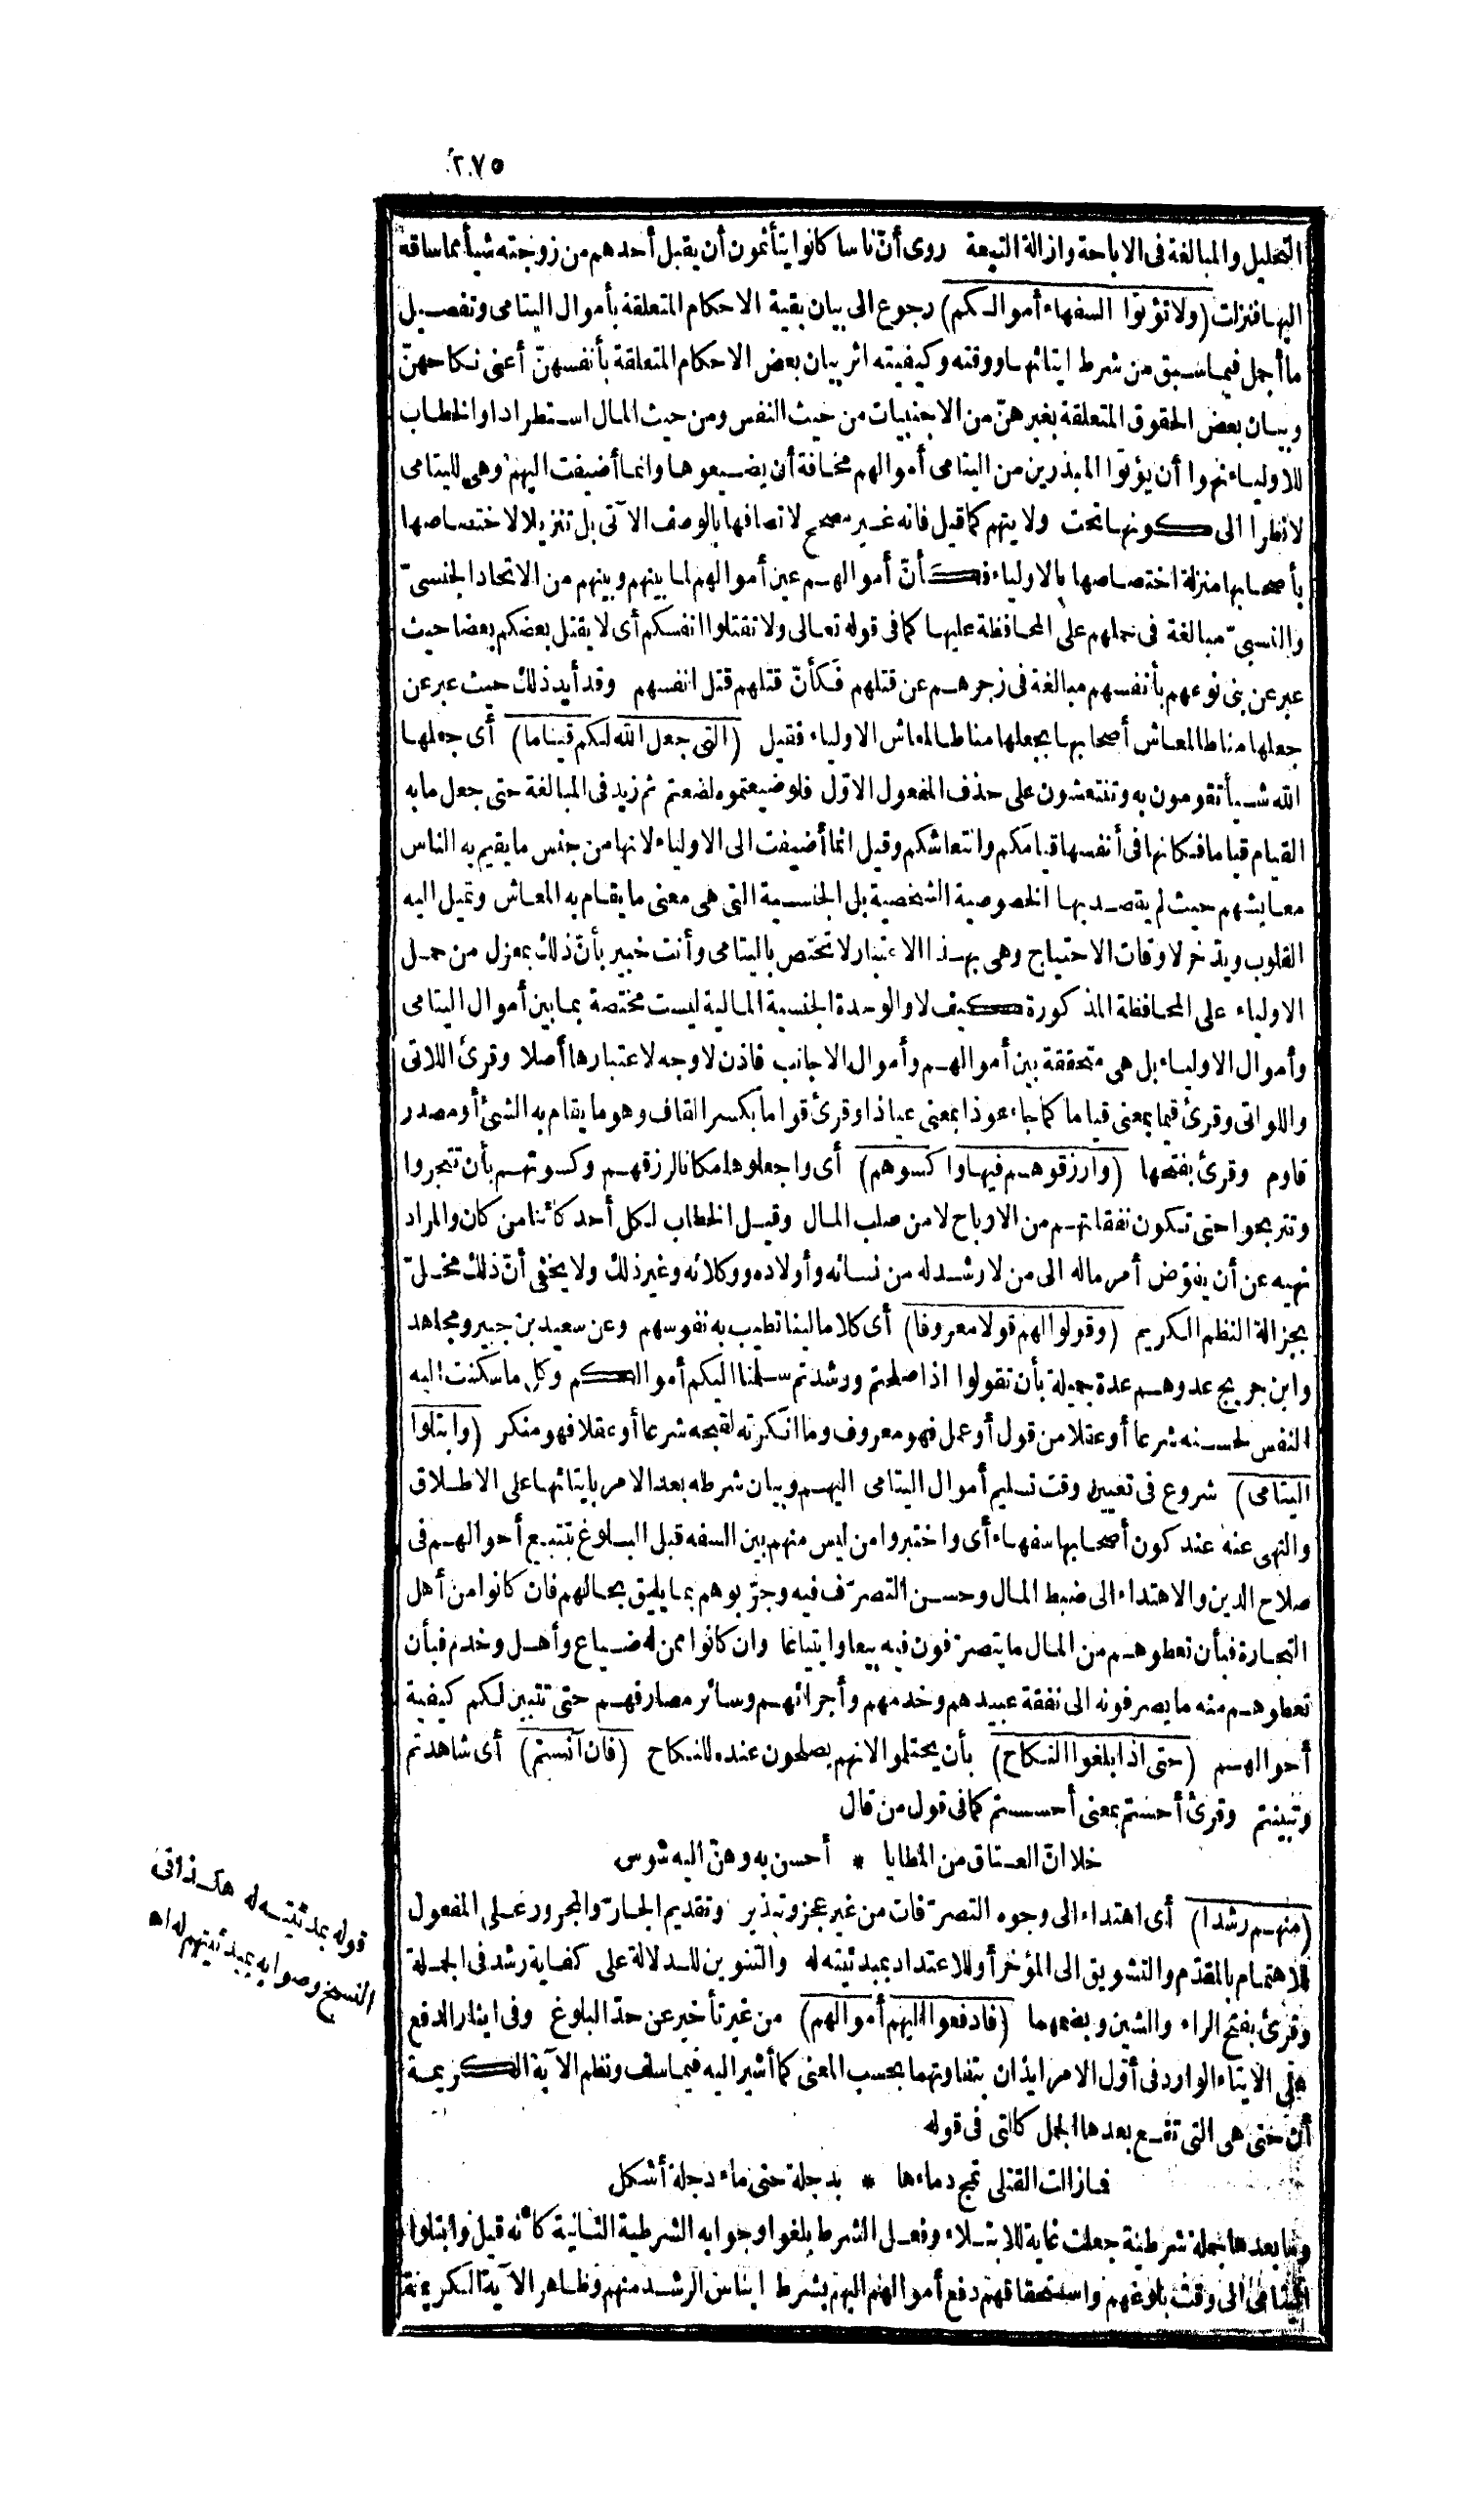 ٢٧٥
التحليل والمبالغة فى الاباحة وازالة التبعة روى أنّ ناسا كانوا يتأثمون أن يقبل أحدهم من زوجته شيأ مما ساقه
اليها فنزلت (ولا تؤتوا السفهاء أموالكم) رجوع الى بيان بقية الاحكام المتعلقة بأموال اليتامى وتفصيل
ما أجمل فيما سبق من شرط ايتائها ووقته وكيفيته اثر بيان بعض الاحكام المتعلقة بأنفسهنّ أعنى نكاحهنّ
وبيان بعض الحقوق المتعلقة بغيرهنّ من الاجنبيات من حيث النفس ومن حيث المال استطرادا والخطاب
للاولياء نهوا أن يؤتوا المبذرين من اليتامى أموالهم مخافة أن يضيعوها وانما أضيفت اليهم وهى لليتامى
لا نظرا الى كونها تحت ولايتهم كما قيل فانه غير مصحح لاتصافها بالوصف الآتى بل تنزيلا لاختصاصها
بأصحابها منزلة اختصاصها بالاولياء فكأنّ أموالهم عين أموالهم لما بينهم وبينهم من الاتحاد الجنسىّ
والنسبىّ مبالغة فى حملهم على المحافظة عليها كما فى قوله تعالى ولا تقتلوا انفسكم أى لا يقتل بعضكم بعضا حيث
عبر عن بنى نوعهم بأنفسهم مبالغة فى زجرهم عن قتلهم فكأنّ قتلهم قتل انفسهم وقد أيد ذلك حيث عبر عن
جعلها مناطا لمعاش أصحابها بجعلها مناطا لمعاش الاولياء فقيل (التى جعل الله لكم قياما) أى جعلها
الله شيأ تقومون به وتنتعشون على حذف المفعول الاوّل فلو ضيعتموه لضعتم ثم زيد فى المبالغة حتى جعل ما به
القيام قياما فكانها فى أنفسها قيامكم وانتعاشكم وقيل انما أضيفت الى الاولياء لانها من جنس ما يقيم به الناس
معايشهم حيث لم يقصد بها الخصوصية الشخصية بل الجنسية التى هى معنى ما يقام به المعاش وتميل اليه
القلوب ويدّخر لاوقات الاحتياج وهى بهذا الاعتبار لا تختص باليتامى وأنت خبير بأنّ ذلك بمعزل من حمل
الاولياء على المحافظة المذكورة كيف لا والوحدة الجنسية المالية ليست مختصة بما بين أموال اليتامى
وأموال الاولياء بل هى متحققة بين أموالهم وأموال الاجانب فاذن لا وجه لاعتبارها أصلا وقرئ اللاتى
واللواتى وقرئ قيما بمعنى قياما كما جاء عوذا بمعنى عياذا وقرئ قواما بكسر القاف وهو ما يقام به الشئ أو مصدر
قاوم وقرئ بفتحها (وارزقوهم فيها واكسوهم) أى واجعلوها مكانا لرزقهم وكسوتهم بأن تتجروا
وتتربحوا حتى تكون نفقاتهم من الارباح لا من صلب المال وقيل الخطاب لكل أحد كائنا من كان والمراد
نهيه عن أن يفوّض أمر ماله الى من لا رشد له من نسائه وأولاده ووكلائه وغير ذلك ولا يخفى أنّ ذلك مخلّ
بجزالة النظم الكريم (وقولوا لهم قولا معروفا) أى كلاما لينا تطيب به نفوسهم وعن سعيد بن جبير ومجاهد
وابن جريج عدوهم عدة جميلة بأن تقولوا اذا صلحتم ورشدتم سلمنا اليكم أموالكم وكل ما سكنت اليه
النفس لحسنه شرعا أو عقلا من قول أو عمل فهو معروف وما انكرته لقبحه شرعا أو عقلا فهو منكر (وابتلوا
اليتامى) شروع فى تعيين وقت تسليم أموال اليتامى اليهم وبيان شرطه بعد الامر بايتائها على الاطلاق
والنهى عنه عند كون أصحابها سفهاء أى واختبروا من ليس منهم بين السفه قبل البلوغ بتتبع أحوالهم فى
صلاح الدين والاهتداء الى ضبط المال وحسن التصرّف فيه وجرّبوهم بما يليق بحالهم فان كانوا من أهل
التجارة فبأن تعطوهم من المال ما يتصرّفون فيه بيعا وابتياعا وان كانوا ممن له ضياع وأهل وخدم فبأن
تعطوهم منه ما يصرفونه الى نفقة عبيدهم وخدمهم وأجرائهم وسائر مصارفهم حتى تتبين لكم كيفية
أحوالهم (حتى اذا بلغوا النكاح) بأن يحتلموا لانهم يصلحون عنده للنكاح (فان آنستم) أى شاهدتم
وتبينتم وقرئ أحستم بمعنى أحسستم كما فى قول من قال
خلا انّ العتاق من المطايا * أحسن به وهنّ اليه شوس
(منهم رشدا) أى اهتداء الى وجوه التصرّفات من غير عجز وتبذير وتقديم الجارّ والمجرور على المفعول
للاهتمام بالمقدّم والتشويق الى المؤخر أو للاعتداد بمبدئيته له والتنوين للدلالة على كفاية رشد فى الجملة
وقرئ بفتح الراء والشين وبضمهما (فادفعوا اليهم أموالهم) من غير تأخير عن حدّ البلوغ وفى ايثار الدفع
على الايتاء الوارد فى أوّل الامر ايذان بتفاوتهما بحسب المعنى كما أشير اليه فيما سلف ونظم الآية الكريمة
أن حتى هى التى تقع بعدها الجمل كالتى فى قوله
فما زالت القتلى تمج دماءها * بدجلة حتى ماء دجلة أشكل
وما بعدها جملة شرطية جعلت غاية للابتلاء وفعل الشرط بلغوا وجوابه الشرطية الثانية كأنه قيل وابتلوا
اليتامى الى وقت بلوغهم واستحقاقهم دفع أموالهم اليهم بشرط ايناس الرشد منهم وظاهر الآية الكريمة
قوله بمدئيته له هكذا فى
النسخ وصوابه بمبدئيتهم له اه